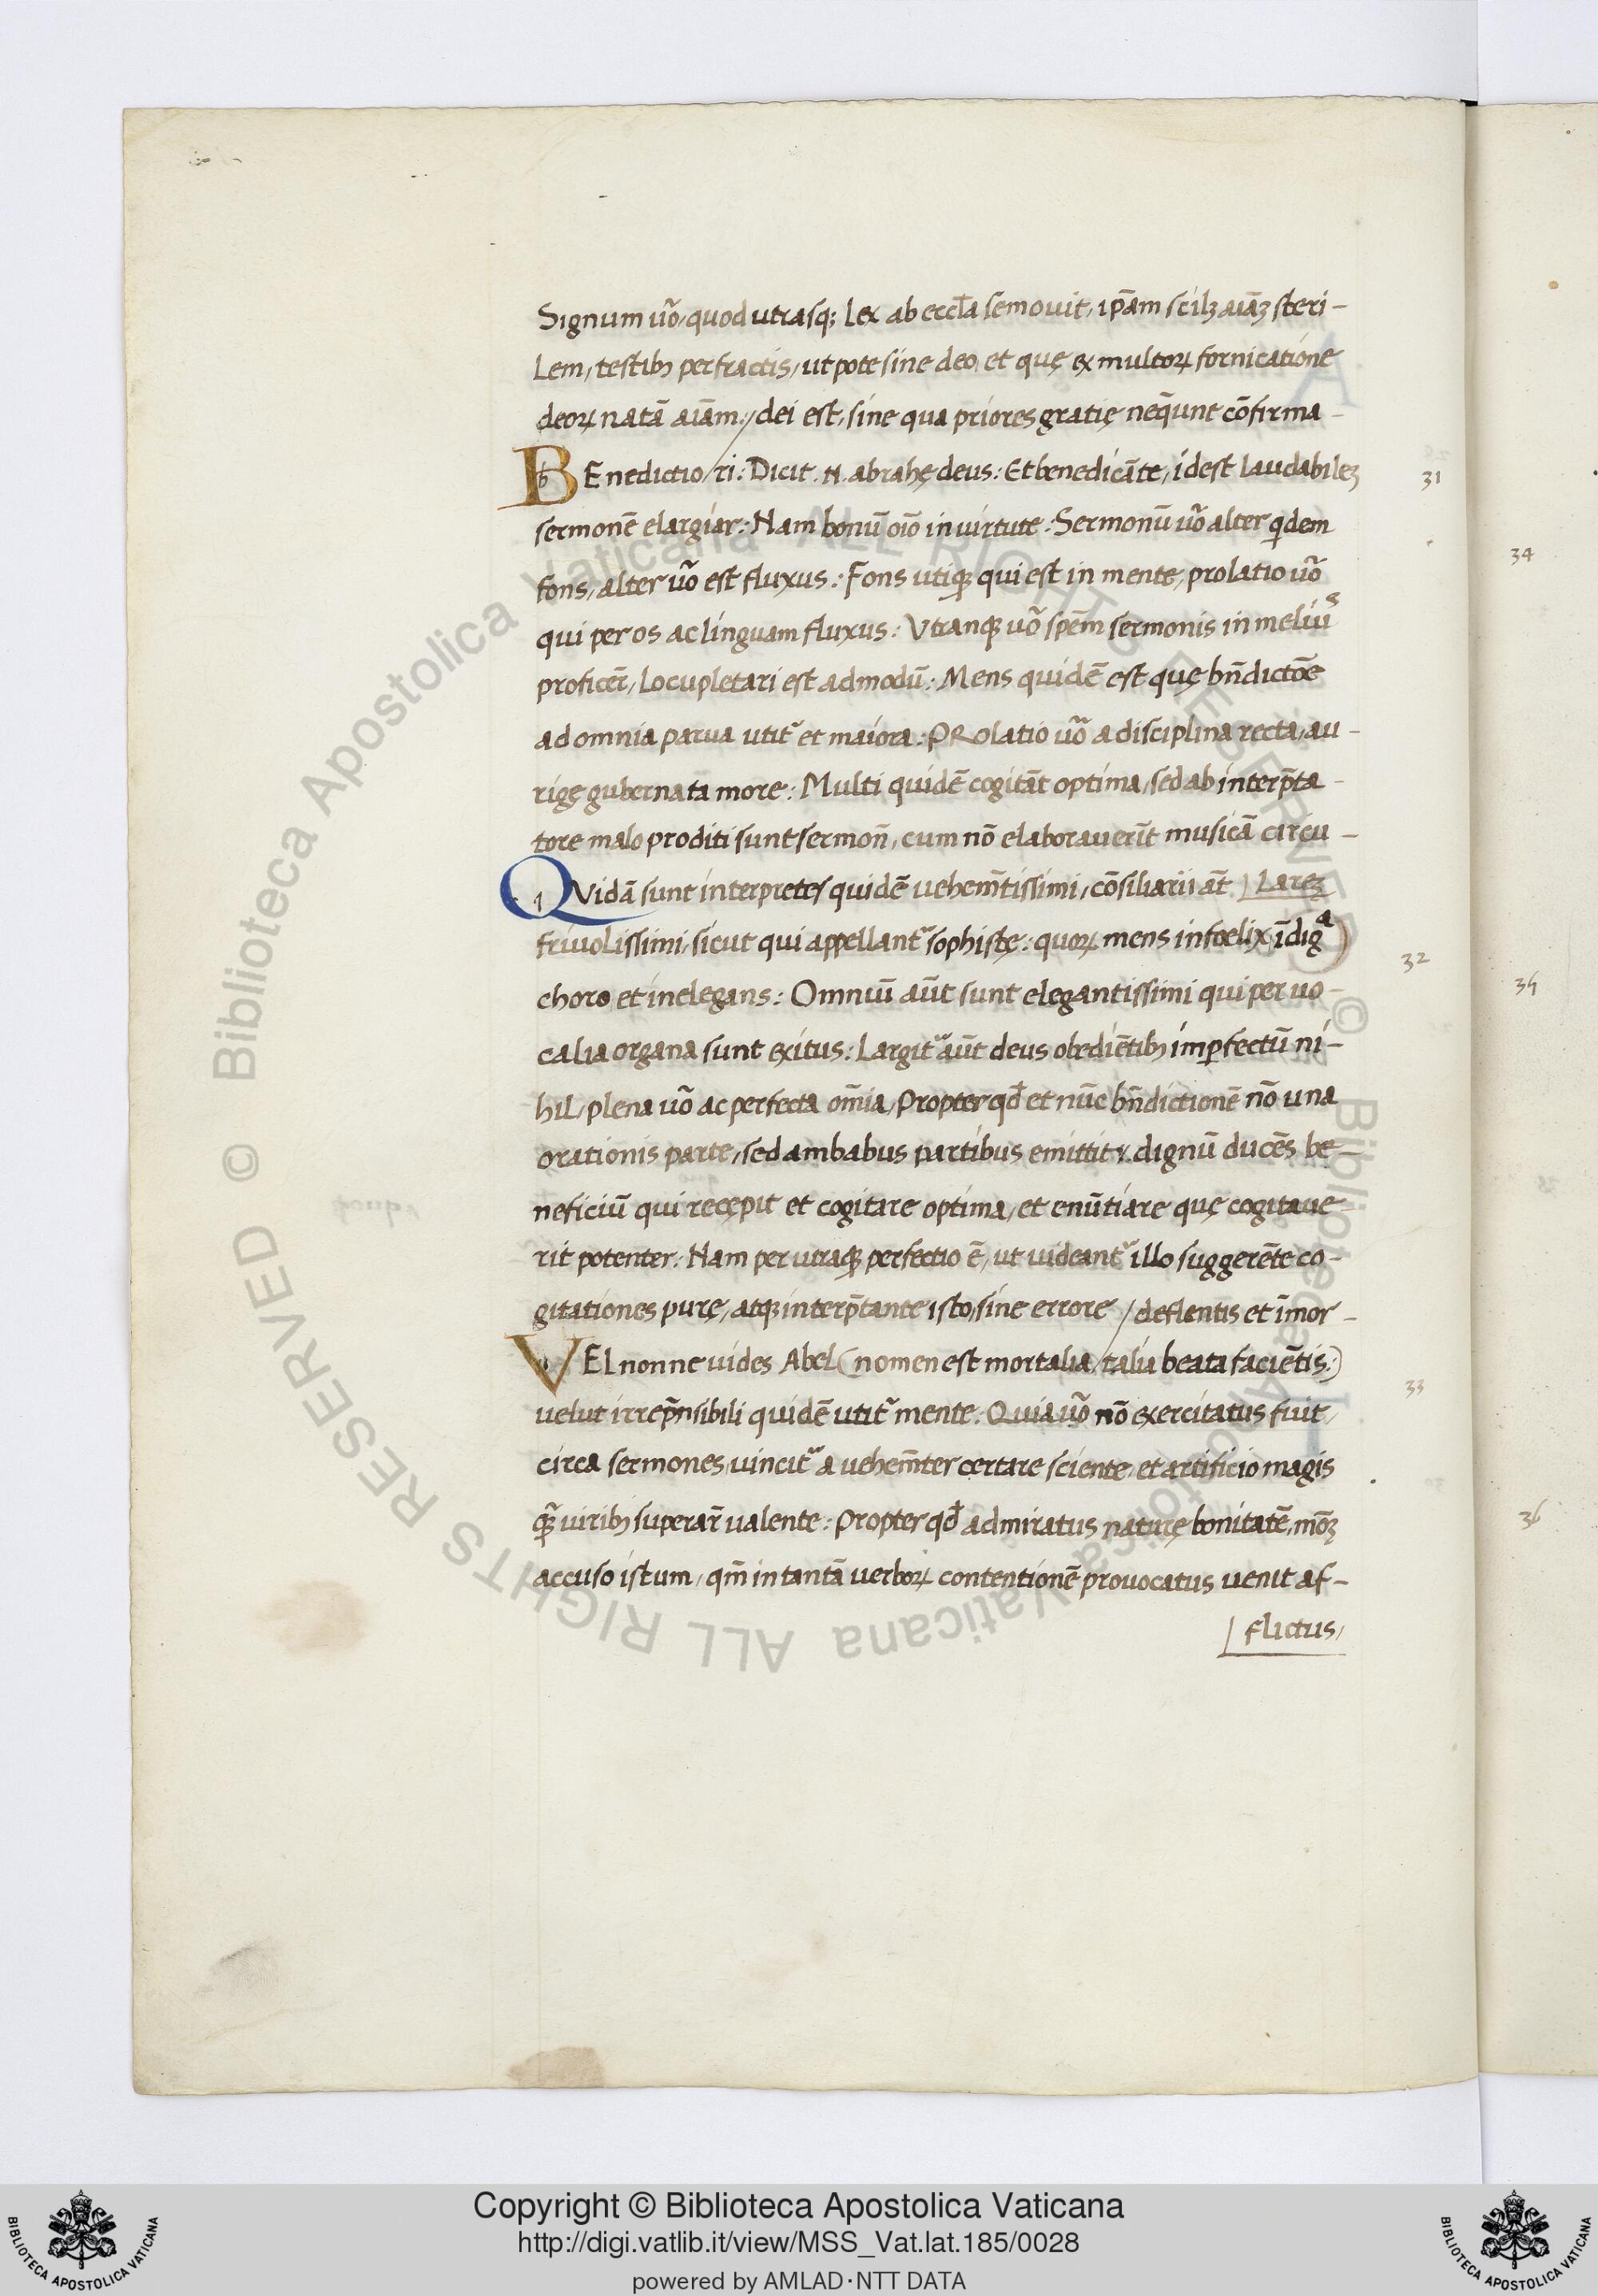 Signum uo᷉, quod utrasq; lex ab eccl̄a semouit, ip̄am scilꝫ aiāꝫ steri-
lem, testibꝫ perfractis, ut pote sine deo, et quę ex multoꝝ fornicatione
deoꝝ natā aiām./ dei est, sine qua priores gratię neq̄unt cōfirma-
BEnedictio / ri: Dicit .N. abrahę deus: Et benedicāte, idest laudabileꝫ
31
sermonē elargiar: Nam bonū oīo in virtute: Sermonū uo᷉ alter qdem
fons, alter uo᷉ est fluxus: Fons utiqꝫ qui est in mente, prolatio uo᷉
qui per os ac linguam fluxus: Vtranqꝫ uo᷉ spēm sermonis in melius
proficer̄, locupletari est admodū: Mens quidē est quę bn̄dictōe
ad omnia parua utit᷑ et maiora: PRolatio uo᷉ a disciplina recta, au-
rigę gubernata more: Multi quidē cogitāt optima, sed ab interp̄ta-
tore malo proditi sunt sermon̄, cum nō elaborauerīt musicā circu-
QVidā sunt interpretes quidē uehem̄tissimi, cōsiliarii at̄ | Lareꝫ
friuolissimi, sicut qui appellant᷑ sophistę: quoꝝ mens infoelix, īdiga)
32
choro, et inelegans: Omniū aūt sunt elegantissimi qui per uo-
calia organa sunt exitus: Largit᷑ aūt deus obediētibꝫ imꝑfectū ni-
hil, plena uo᷉ ac perfecta om̄ia, Propter qđ et nūc bn̄dictionē nō una
orationis parte, sed ambabus partibus emittit, dignū ducēs be-
neficiū qui recępit et cogitare optima, et enūtiare quę cogitaue-
rit potenter: Nam per utraqꝫ perfectio ē, ut uideant᷑ illo suggerēte co-
gitationes purę, atqꝫ interp̄tante isto, sine errore / deflentis et īmor-
VEL nonne uides Abel (nomen est mortalia / talia beata faciētis:)
33
uelut irrep̄nsibili quidē utit᷑ mente: Quia uo᷉ nō exercitatus fuit,
circa sermones, uincit᷑ a uehem̄ter certare sciente, et artificio magis
qꝫ̄ uiribꝫ superar̄ ualente: Propter qđ admiratus naturę bonitatē, mōꝫ
accuso istum, qm̄ in tantā uerboꝝ contentionē prouocatus uenit af-
| flictus,
34
35
36
Copyright © Biblioteca Apostolica Vaticana
http://digi.vatlib.it/view/MSS_Vat.lat.185/0028
powered by AMLAD·NTT DATA
BIBLIOTECA APOSTOLICA VATICANA
BIBLIOTECA APOSTOLICA VATICANA
© Biblioteca Apostolica Vaticana ALL RIGHTS RESERVED © Biblioteca Apostolica Vaticana ALL RIGHTS RESERVED